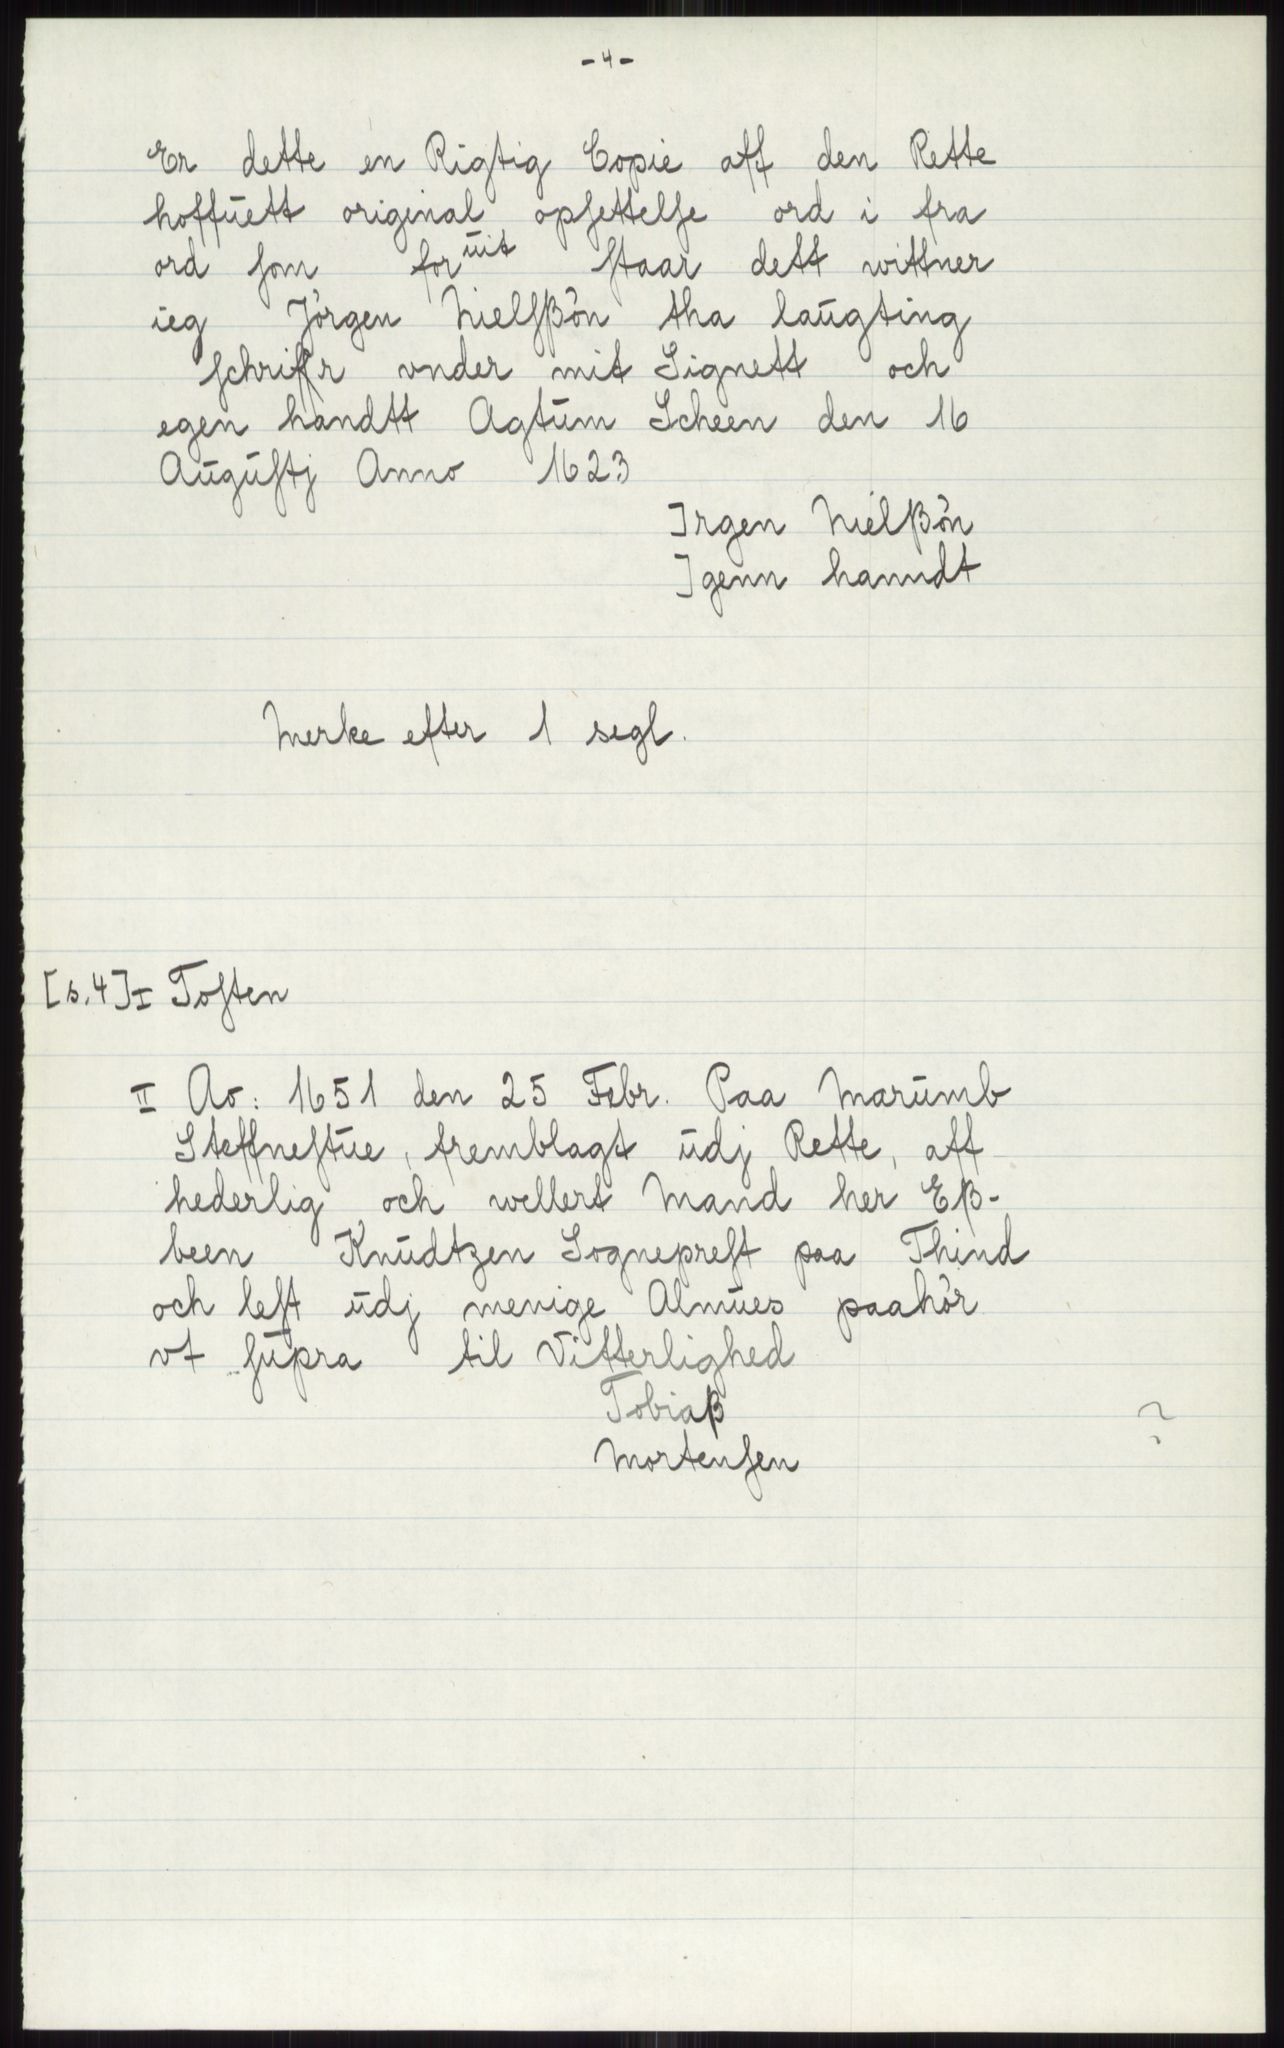 -4-
Er dette en Rigtig Copie aff den Rette
hoffuett original opsettelse ord i fra
ord som foruit staar dett wittner
ieg Jörgen Nielsßön tha laugting
schrifr vnder mit Signett och
egen handtt Agtum Scheen den 16
Augustj Anno 1623
Jrgen Nielßön
Jgenn hanndt
Merke efter 1 segl.
[s.4] I Toften
II Ao: 1651 den 25 Febr. Paa Marumb
Steffnestue, fremblagt udj Rette, aff
hederlig och wellert Mand her Eß-
been Knudtzen Sogneprest paa Thind
och lest udj menige Almues paahör
vt supra til Vitterlighed
Tobiaß
Mortensen
?